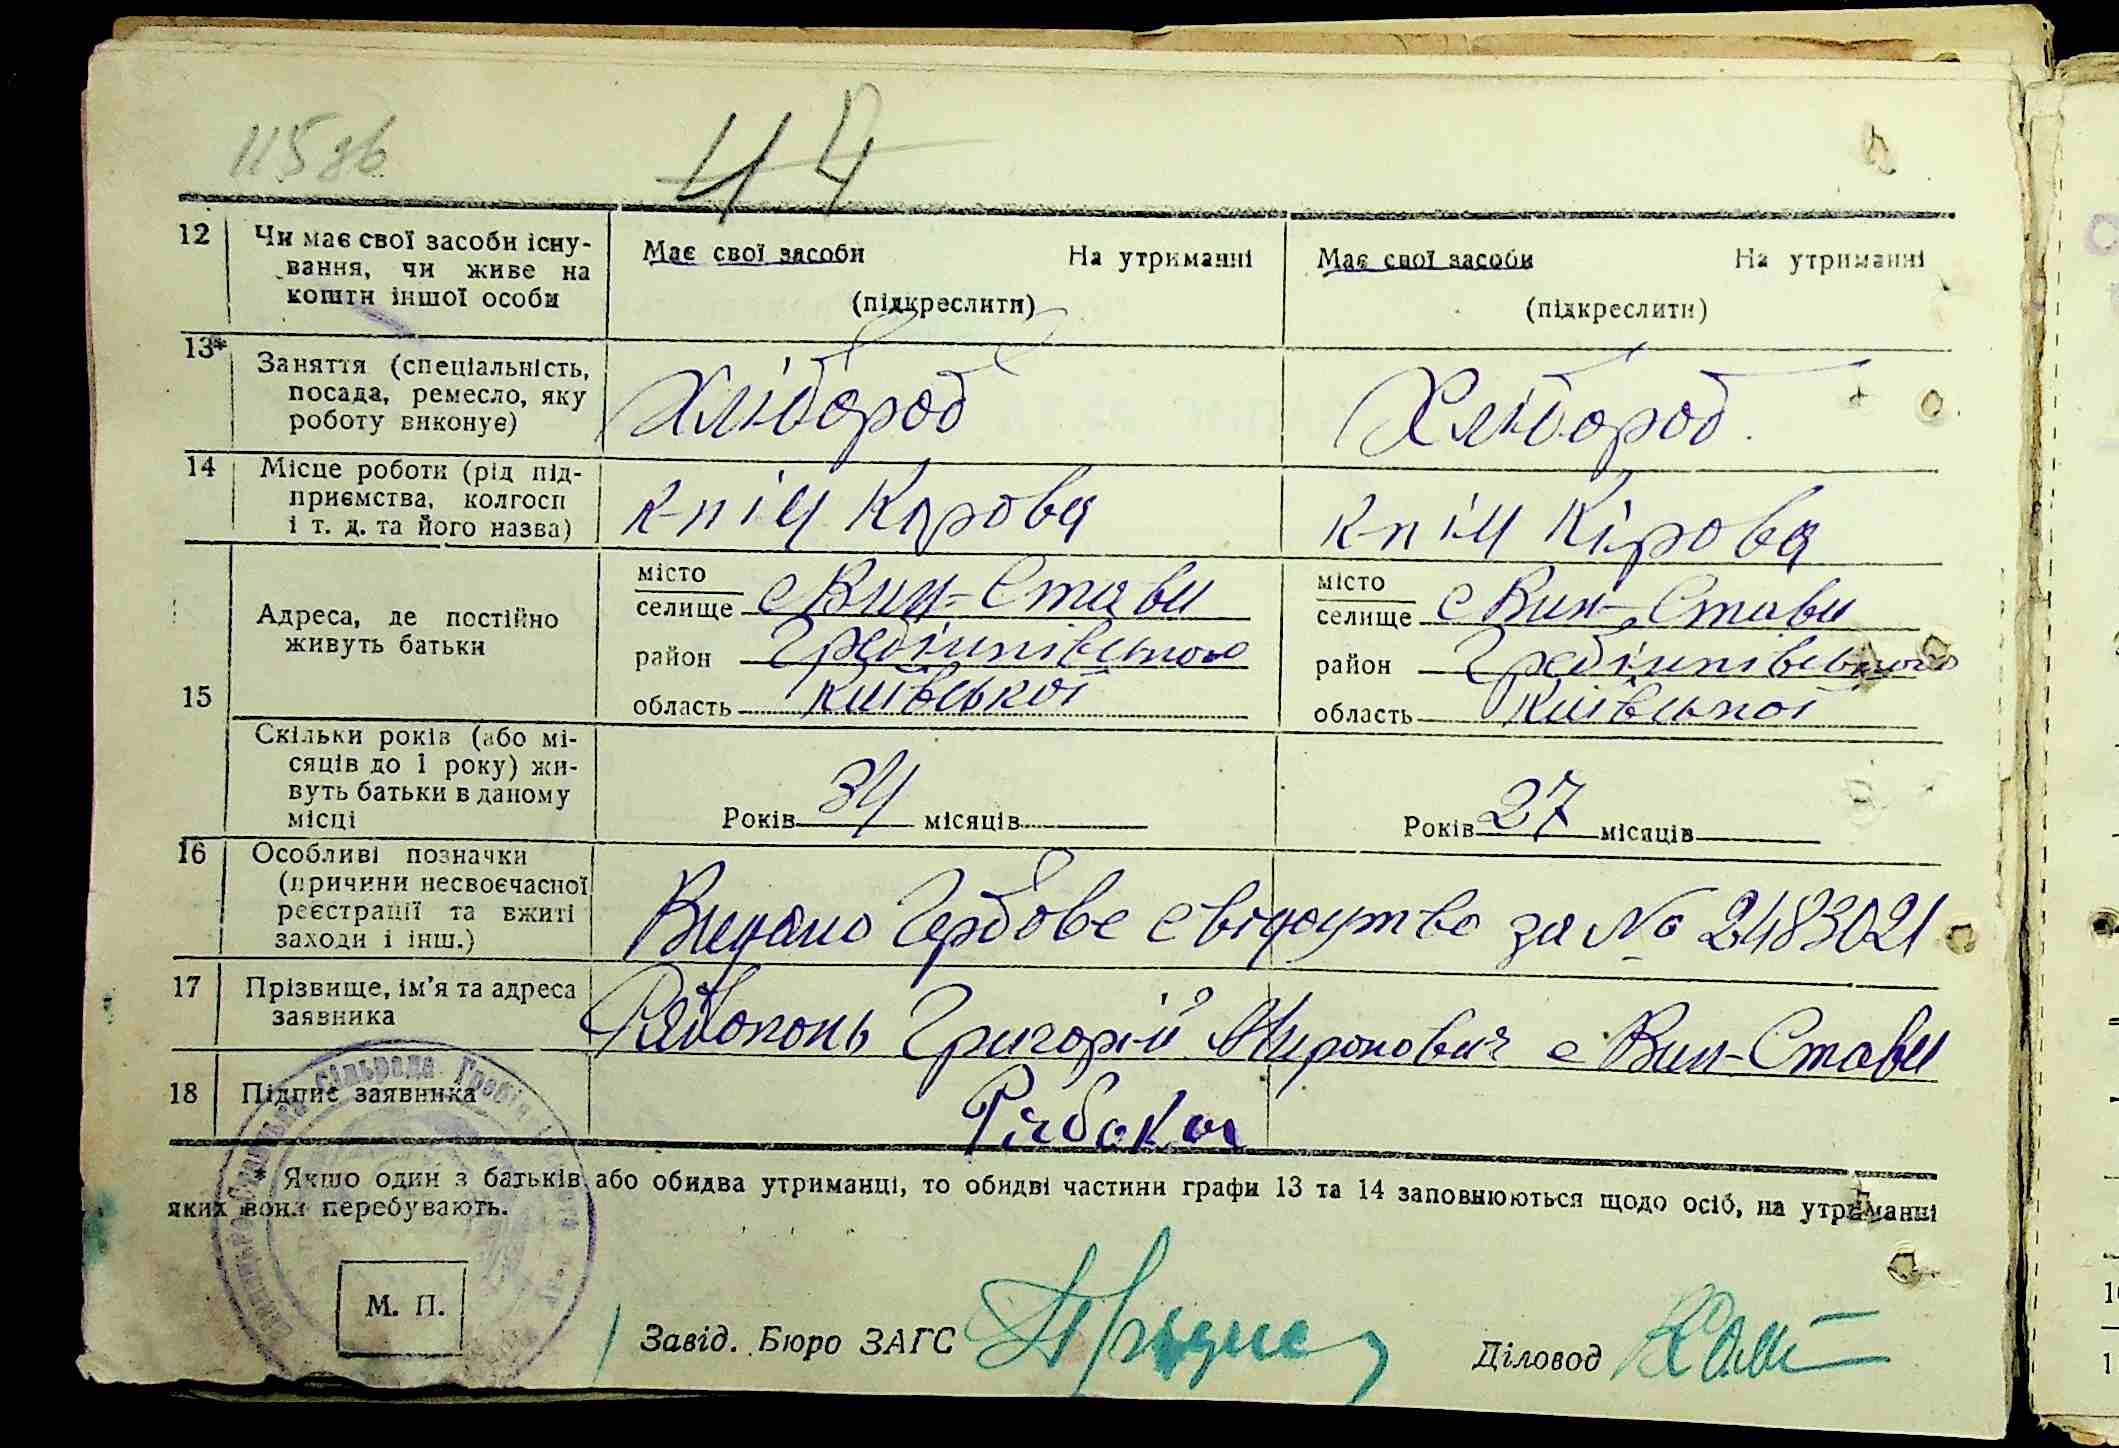 115 зв
44
12 Чи має свої засоби існу-
вання, чи живе на
кошти іншої особи
Має свої засоби На утриманні
(підкреслити)
Має свої засоби На утриманні
(підкреслити)
13* Заняття (спеціальність,
посада, ремесло, яку
роботу виконує)
Хлібороб
Хлібороб.
14 Місце роботи (рід під-
приємства, колгосп
і т. д. та його назва)
к-п ім Кірова
к-п ім Кірова
15 Адреса, де постійно
живуть батьки
місто
селище с Вин-Стави
район Гребінківського
область Київської
місто
селище с Вин-Стави
район Гребінківського
область Київської
Скільки років (або мі-
сяців до 1 року) жи-
вуть батьки в даному
місці
Років 34 місяців
Років 27 місяців
16 Особливі позначки
(причини несвоєчасної
реєстрації та вжиті
заходи і інш.)
Видано Гербове свідоцтво за № 2483021
17 Прізвище, ім'я та адреса
заявника
Рябоконь Григорій Миронович с Вин-Стави
18 Підпис заявника
Рябокон
* Якщо один з батьків або обидва утриманці, то обидві частини графи 13 та 14 заповнюються щодо осіб, на утриманні
яких вони перебувають.
М. П.
Завід. Бюро ЗАГС
Діловод